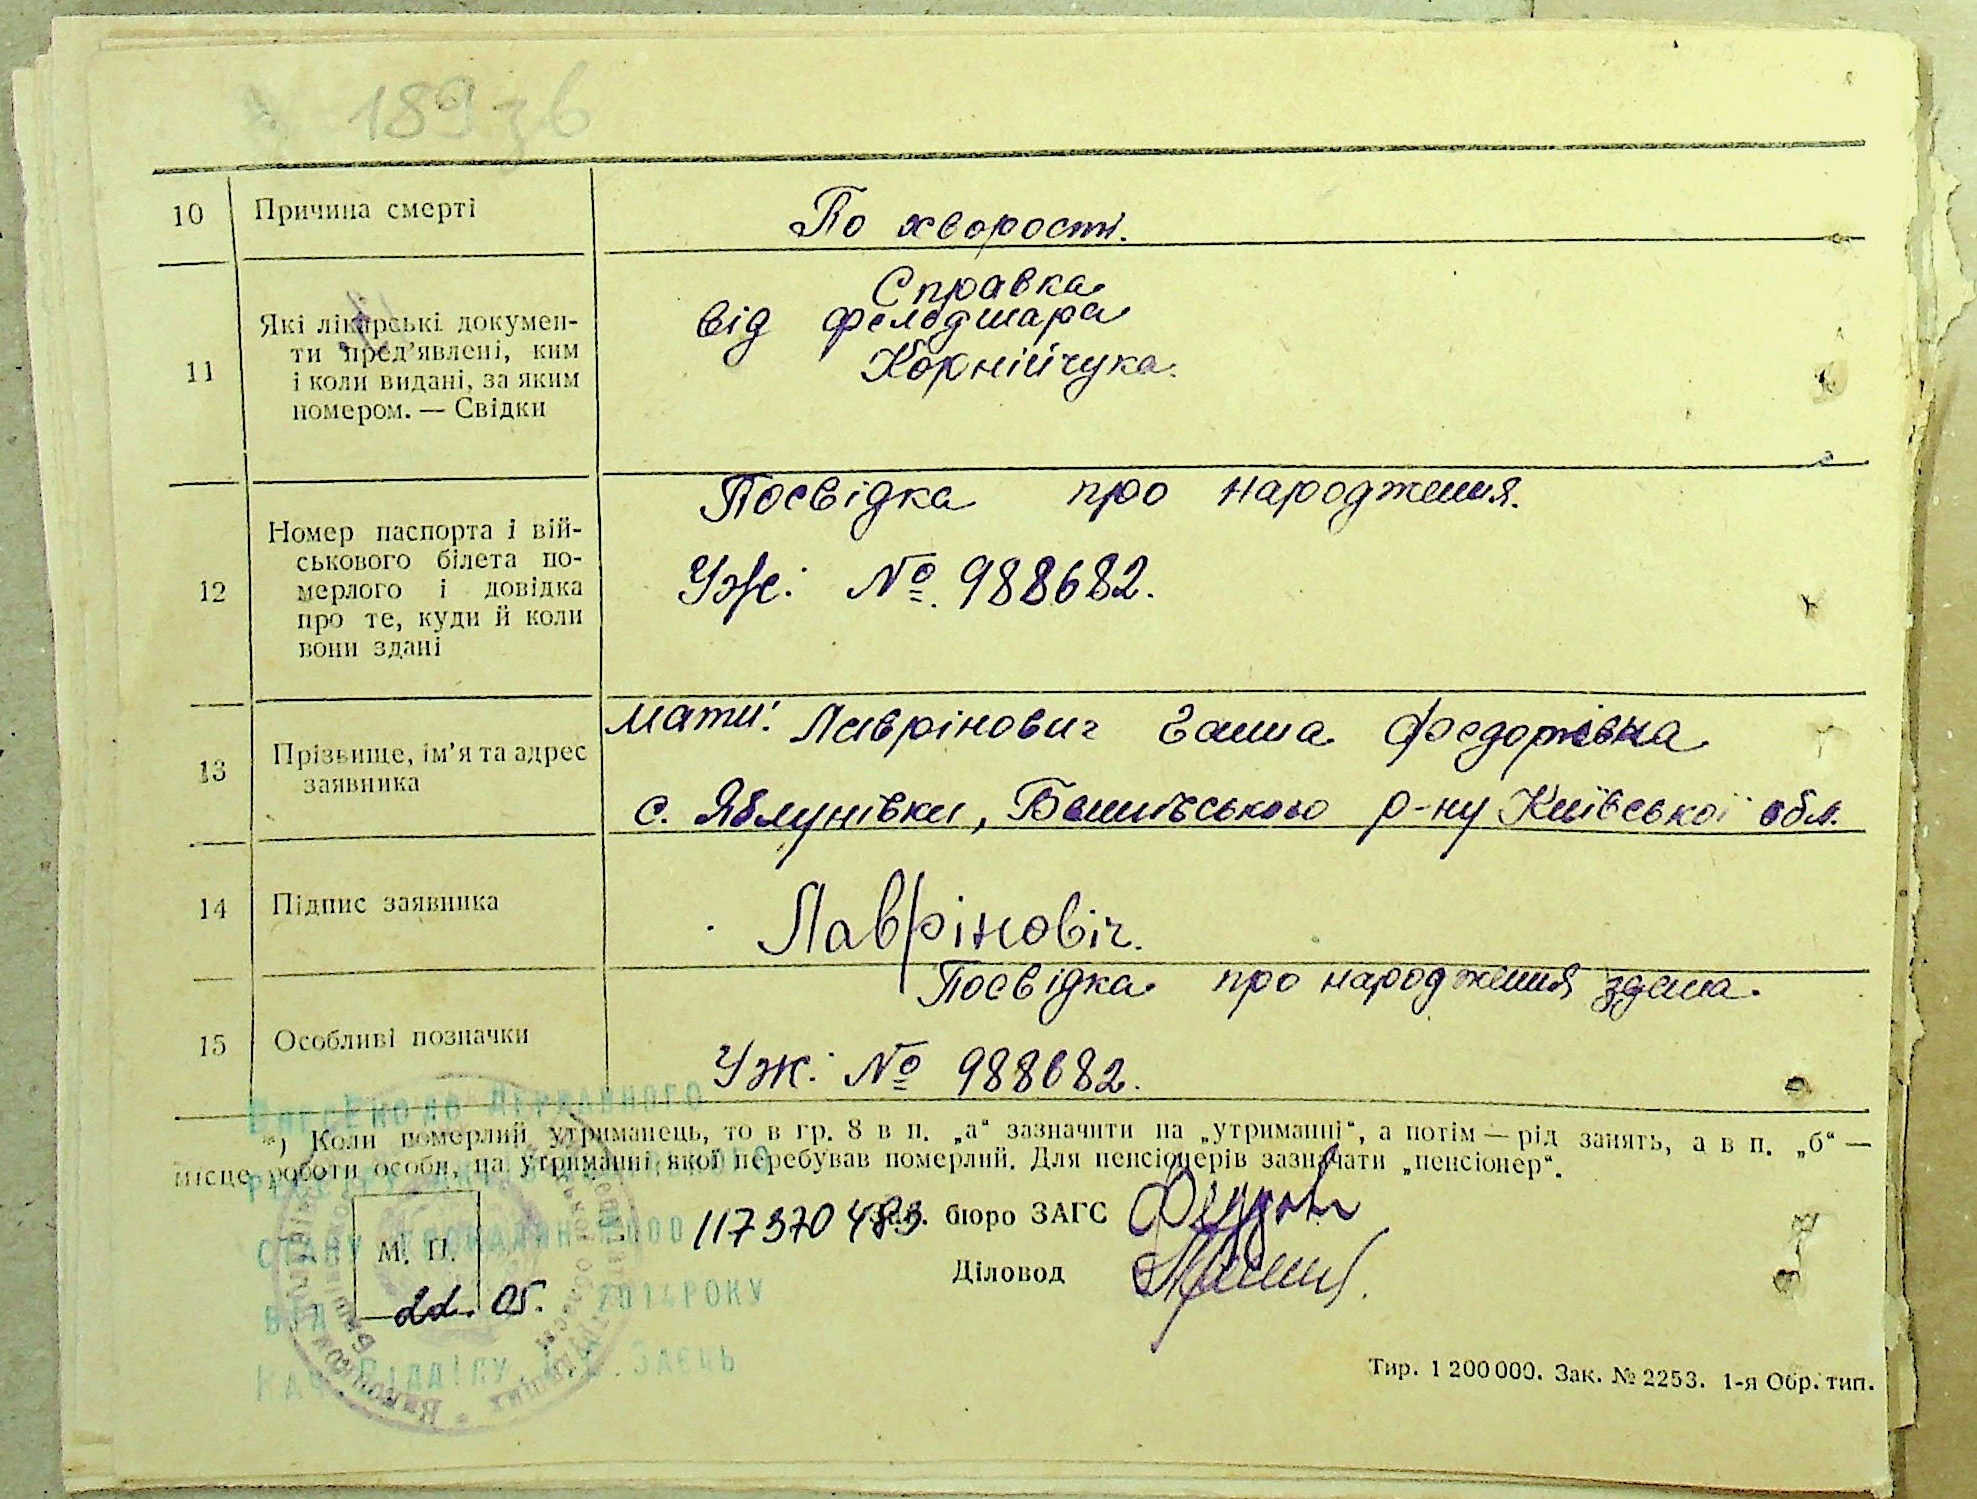 189 зв
10 Причина смерті
По хворості.
11 Які лікарські докумен-
ти пред'явлені, ким
і коли видані, за яким
номером. — Свідки
Справка
від фелодшара
Корнійчука.
12 Номер паспорта і вій-
ськового білета по-
мерлого і довідка
про те, куди й коли
вони здані
Посвідка про народження.
УЖ: № 988682.
13 Прізвище, ім'я та адрес
заявника
Мати: Лаврінович Ганна Федорівна
с. Яблунівки, Бишівського р-ну Київської обл.
14 Підпис заявника
Лаврінович.
15 Особливі позначки
Посвідка про народження здана.
УЖ: № 988682.
*) Коли померлий утриманець, то в гр. 8 в п. „а“ зазначити на „утриманні“, а потім — рід занять, а в п. „б“ —
місце роботи особи, на утриманні якої перебував померлий. Для пенсіонерів зазначати „пенсіонер“.
117370483
Зав. бюро ЗАГС
М. П.
Діловод
Внесено до Державного
реєстру
стану громадян
від 22.05. 2014 року
Нач. відділу Заєць
Тир. 1 200 000. Зак. № 2253. 1-я Обр. тип.